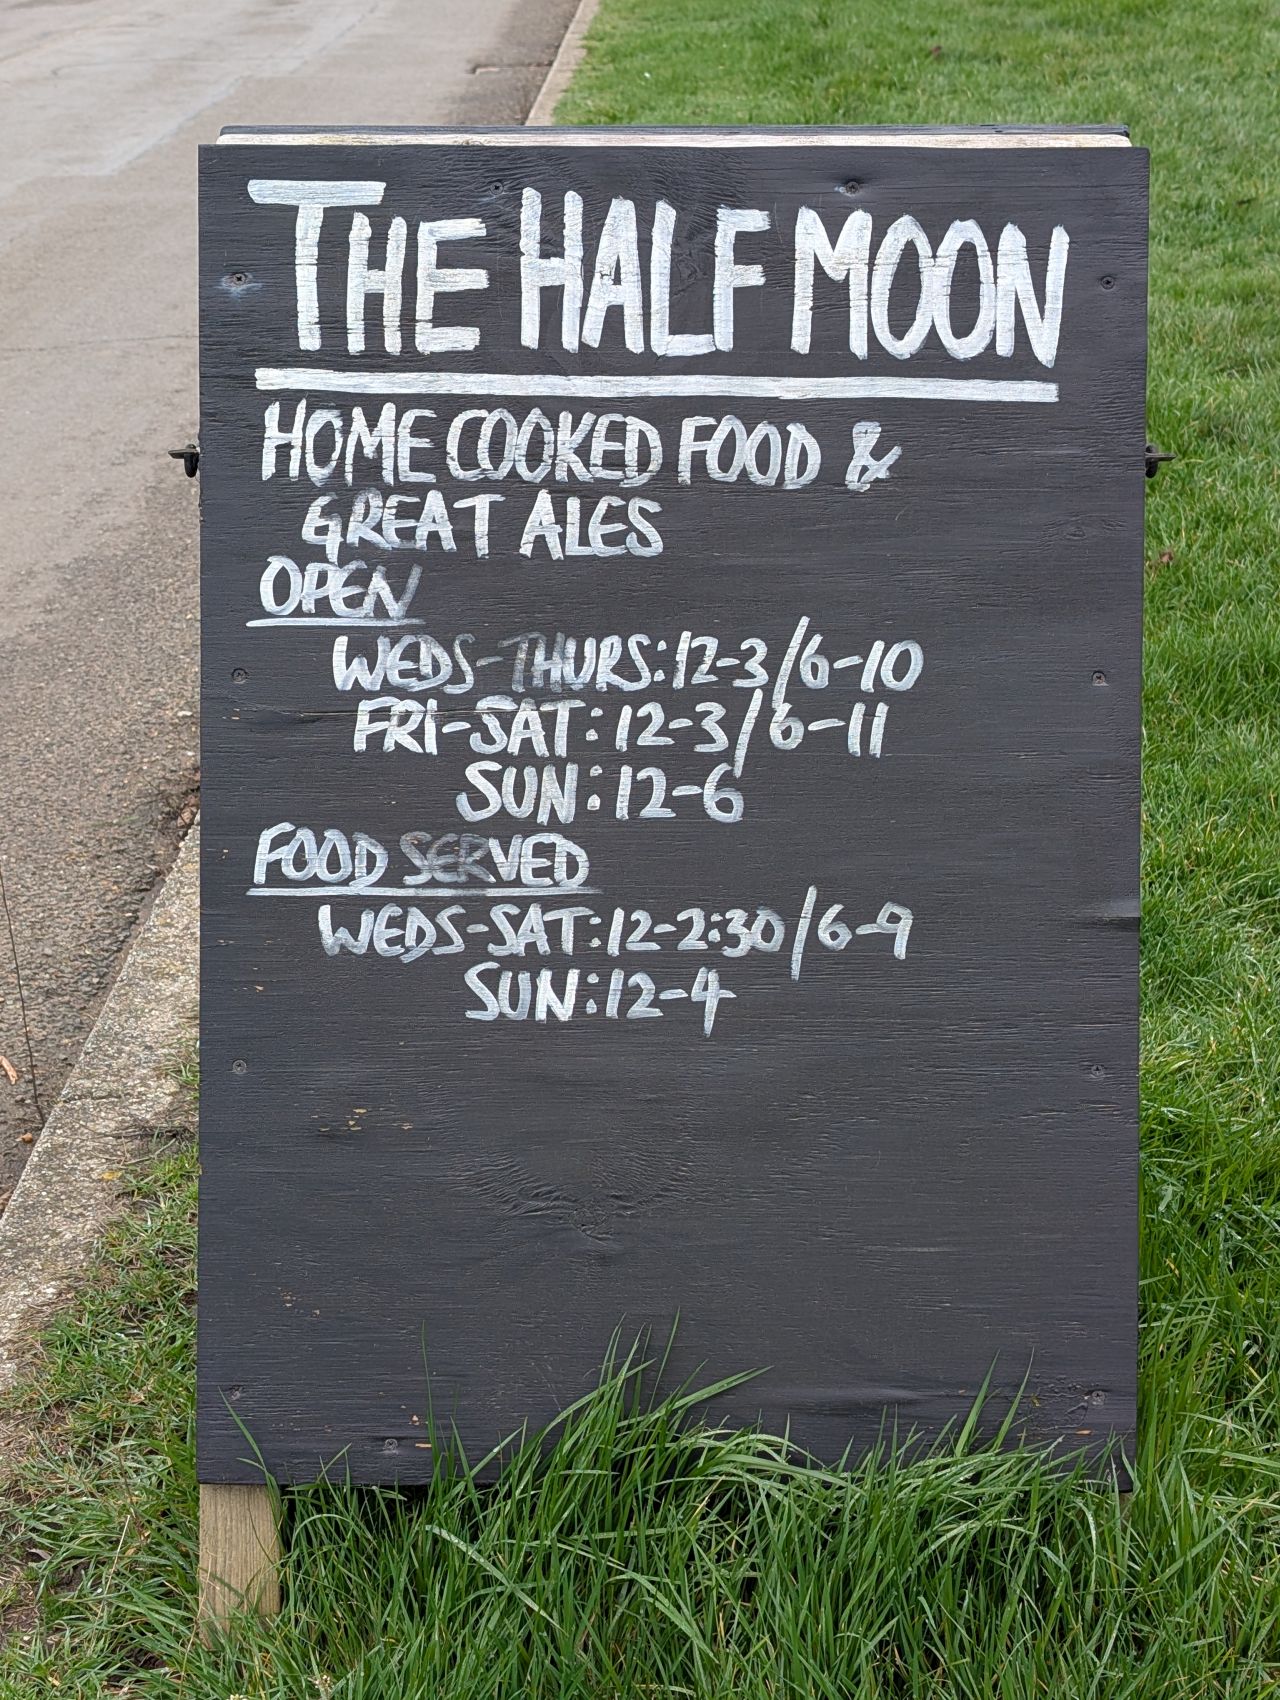 THE HALF MOON
HOME COOKED FOOD &
GREAT ALES
OPEN
WEDS-THURS: 12-3/6-10
FRI-SAT: 12-3/6-11
SUN: 12-6
FOOD SERVED
WEDS-SAT: 12-2:30/6-9
SUN: 12-4